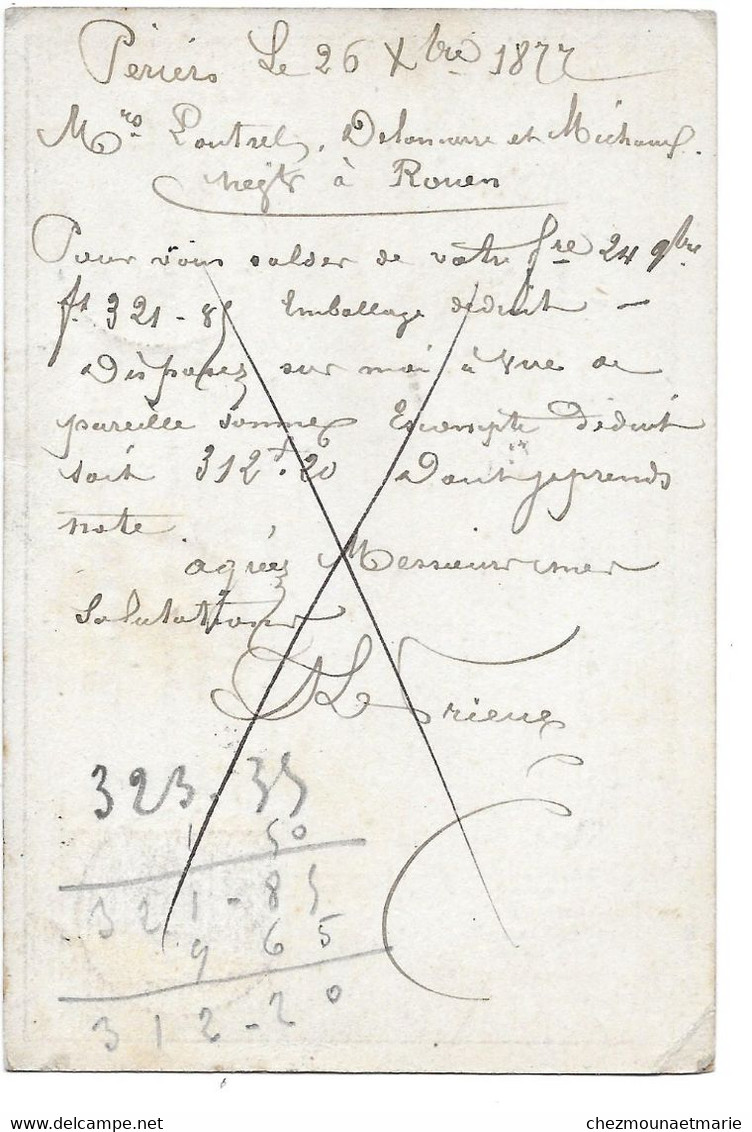 Périers Le 26 Xbre 1877
Mrs Poutrel, Delamarre et Michaux
Negts à Rouen
Pour vous solder de votre fre 24 9bre
ft 321-85 Emballage déduit —
Disposez sur moi à vue de
pareille somme Escompte déduit
soit 312f.20 Dont je prends
note
agréez Messieurs mes
Salutations
323.35
1 50
321-85
9 65
312-20
www.delcampe.net
chezmounaetmarie